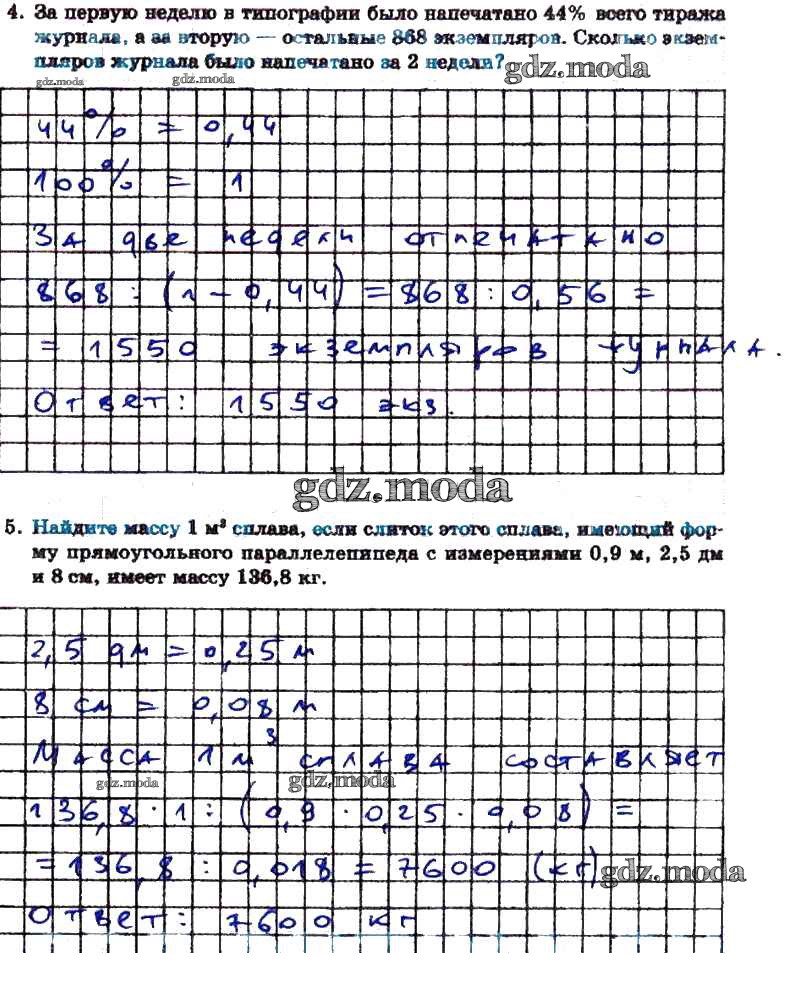 4. За первую неделю в типографии было напечатано 44% всего тиража
журнала, а за вторую — остальные 868 экземпляров. Сколько экзем-
пляров журнала было напечатано за 2 недели? gdz.moda
gdz.moda gdz.moda
44% = 0,44
100% = 1
За две недели отпечатано
868 : (1 - 0,44) = 868 : 0,56 =
= 1550 экземпляров журнала.
Ответ: 1550 экз.
gdz.moda
5. Найдите массу 1 м³ сплава, если слиток этого сплава, имеющий фор-
му прямоугольного параллелепипеда с измерениями 0,9 м, 2,5 дм
и 8 см, имеет массу 136,8 кг.
2,5 дм = 0,25 м
8 см = 0,08 м
Масса 1 м³ сплава составляет
gdz.moda gdz.moda
136,8 · 1 : (0,9 · 0,25 · 0,08) =
= 136,8 : 0,018 = 7600 (кг) gdz.moda
Ответ: 7600 кг